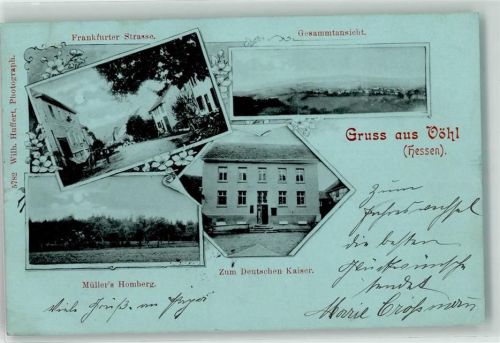 Frankfurter Strasse.
Gesammtansicht.
5782 Wilh. Haffert, Photograph.
Gruss aus Vöhl
(Hessen).
Müller's Homberg.
Zum Deutschen Kaiser.
Zum
Jahreswechsel
die besten
Glückwünsche
sendet
Marie
Viele Grüß. an